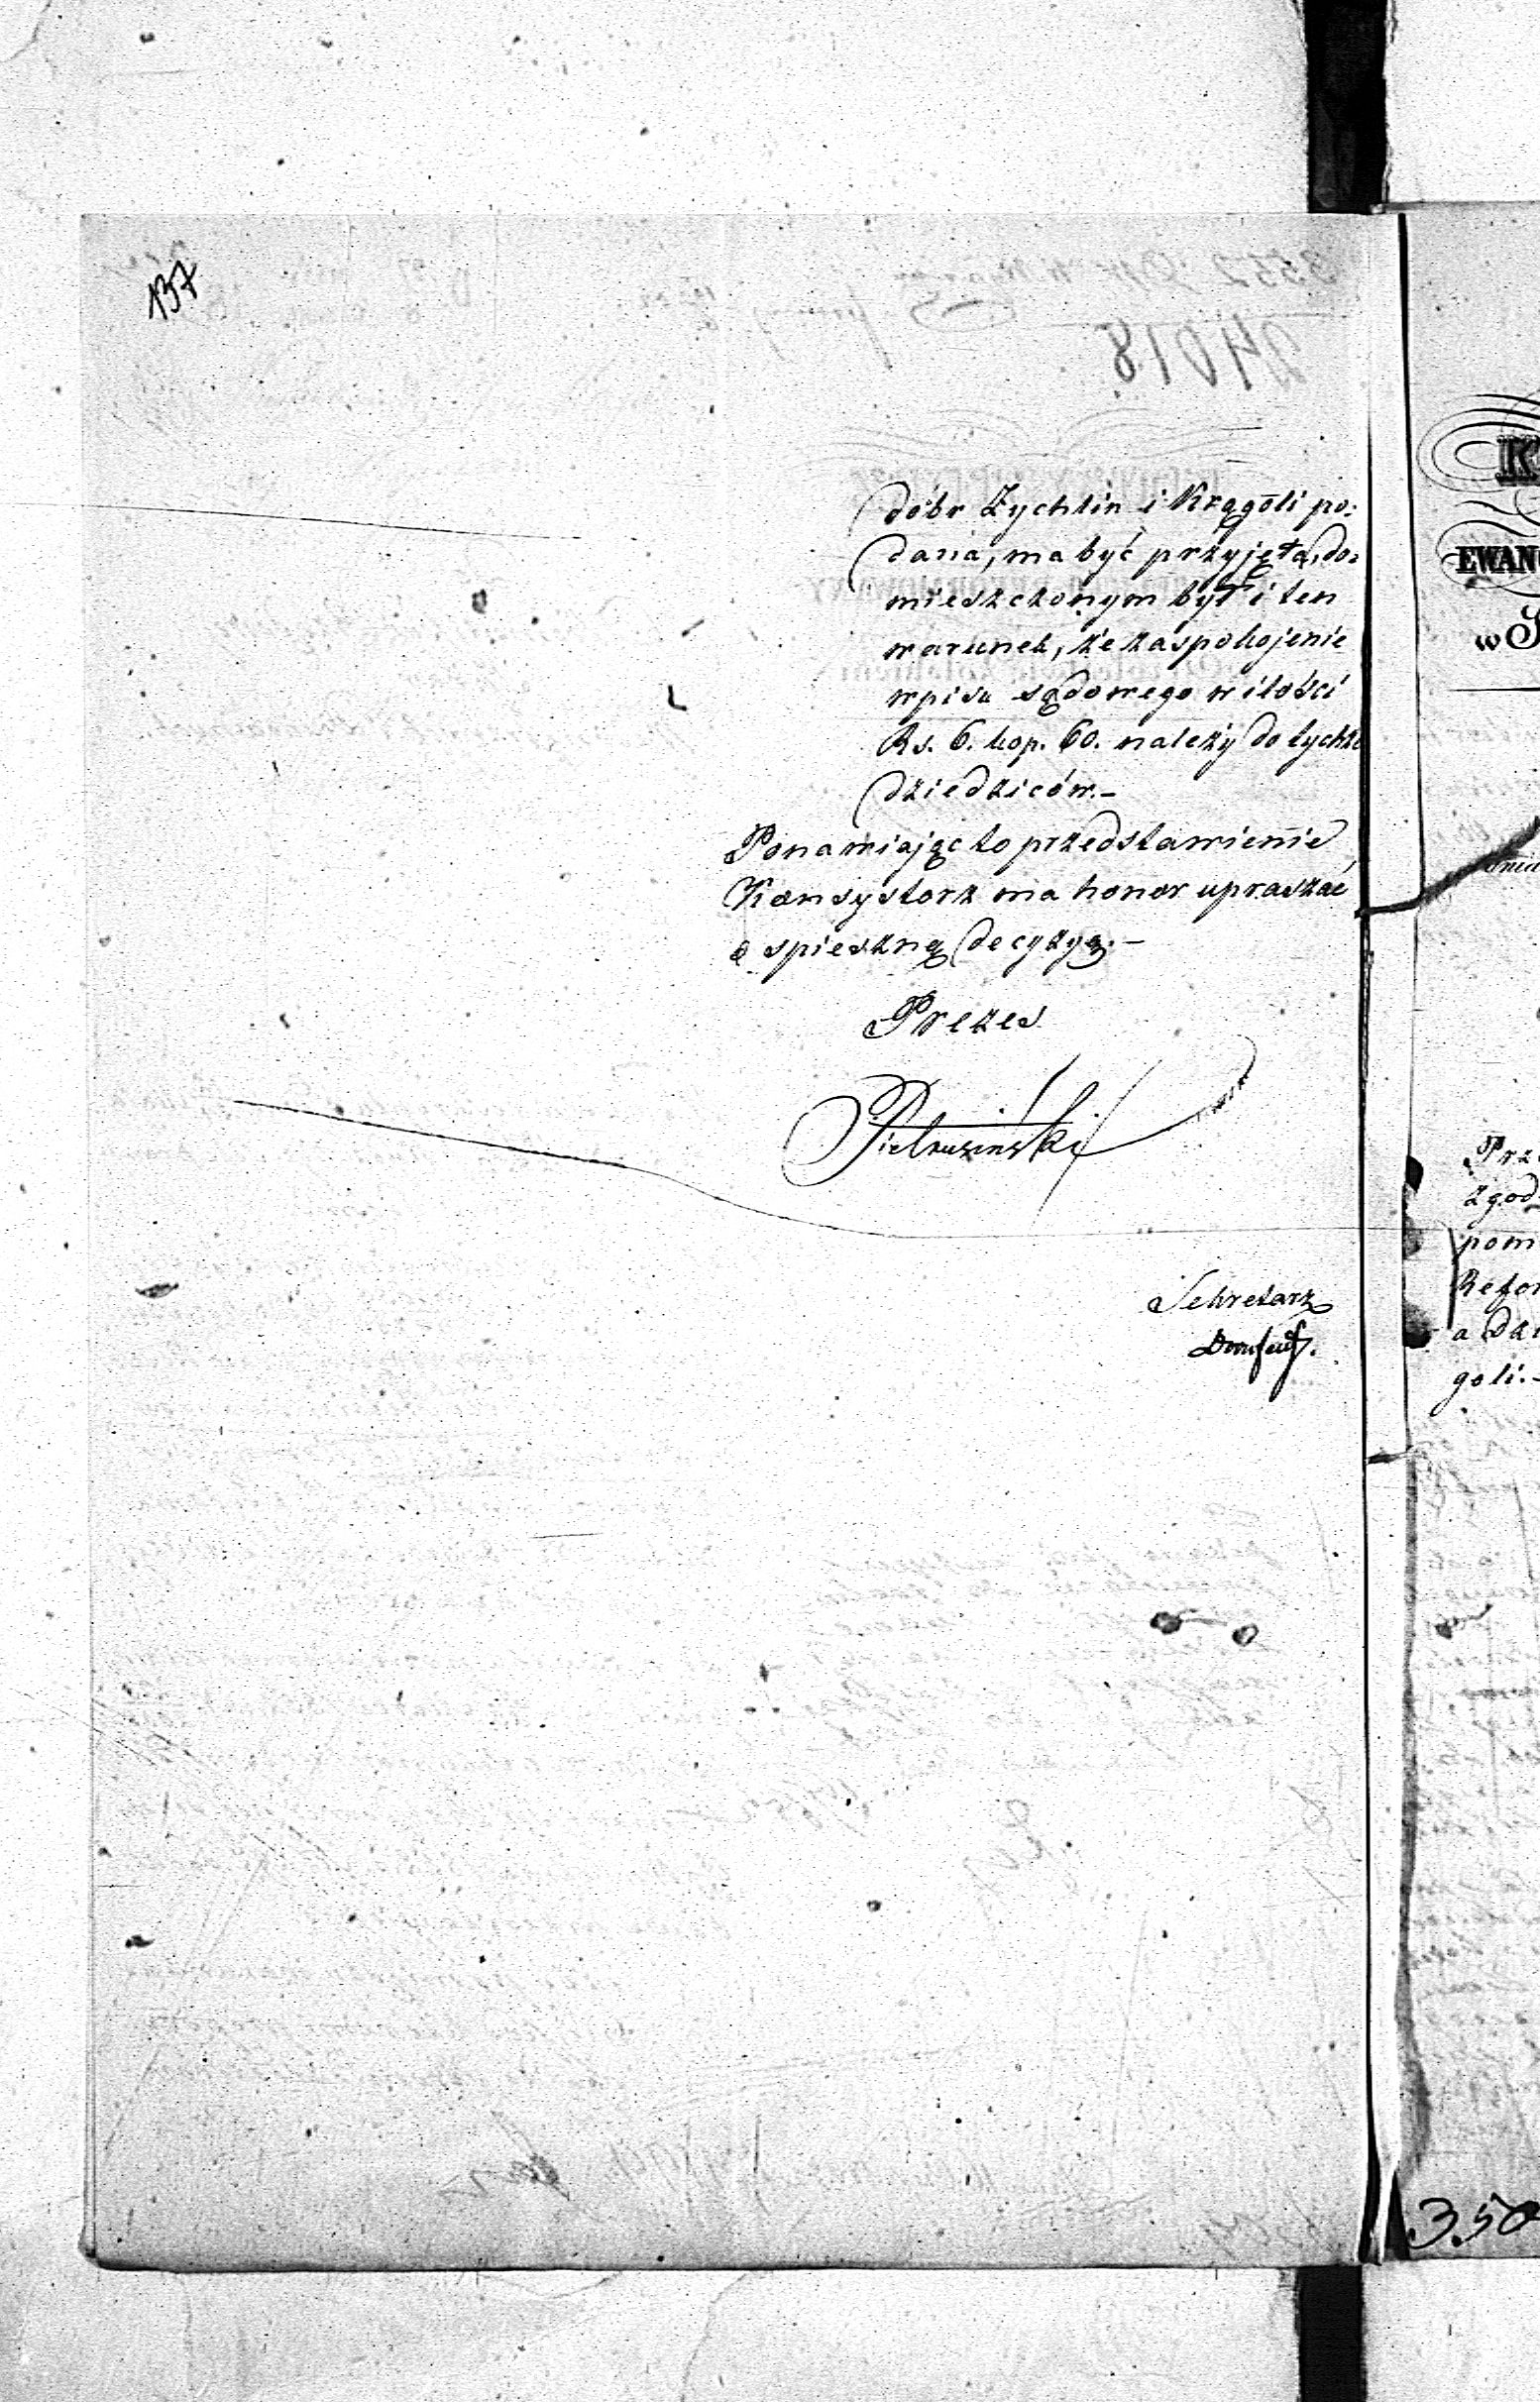 137
dóbr Żychlin i Krągoli po=
dana, ma być przyjęta, do=
mieszczonym był i ten
warunek, że zaspokojenie
wpisu sądowego w ilości
Rs. 6. kop. 60. należy do tychże
dziedziców.–
Ponawiając to przedstawienie
Konsystorz ma honor upraszać
o spieszną decyzyą.–
Prezes
Pietrusiński
Sekretarz
K
EWAN
w S
Prze
zgod
pom
Refor
a Dzi
goli.–
350